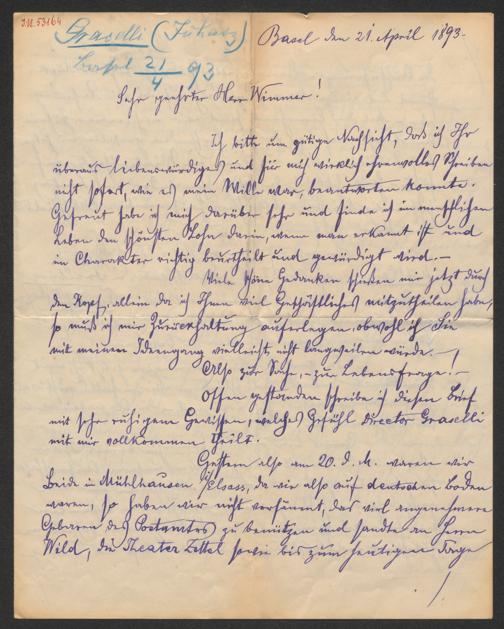 I.N. 53164
Graselli (Juhasz)
Basel 21/4 93
Basel den 21. April 1893.
Sehr geehrter Herr Wimmer!
Ich bitte um gütige Nachsicht, daß ich Ihr
überaus liebenswürdiges und für mich wirklich ehrenvolles Schreiben
nicht sofort, wie es mein Wille war, beantworten konnte.
Gefreut habe ich mich darüber sehr und finde ich im menschlichen
Leben den schönsten Lohn darin, wenn man erkannt ist und
im Charakter richtig beurtheilt und gewürdigt wird.–
Viele schöne Gedanken schießen mir jetzt durch
den Kopf, allein da ich Ihnen viel Geschäftliches mitzutheilen habe,
so muß ich mir Zurückhaltung auferlegen, obwohl ich Sie
mit meinem Ideengang vielleicht nicht langweilen würde.–
Also zur Sache, – zur Lebensfrage.–
Offen gestanden schreibe ich diesen Brief
mit sehr ruhigem Gewissen, welches Gefühl Director Graselli
mit mir vollkommen theilt.
Gestern also am 20. d. M. waren wir
Beide in Mühlhausen Elsass, da wir also auf deutschen Boden
waren, so haben wir nicht versäumt, das viel angenehmere
Gebaren des Postamtes zu benützen und sandte an Herrn
Wild, die Theater Zettel sowie bis zum heutigen Tage